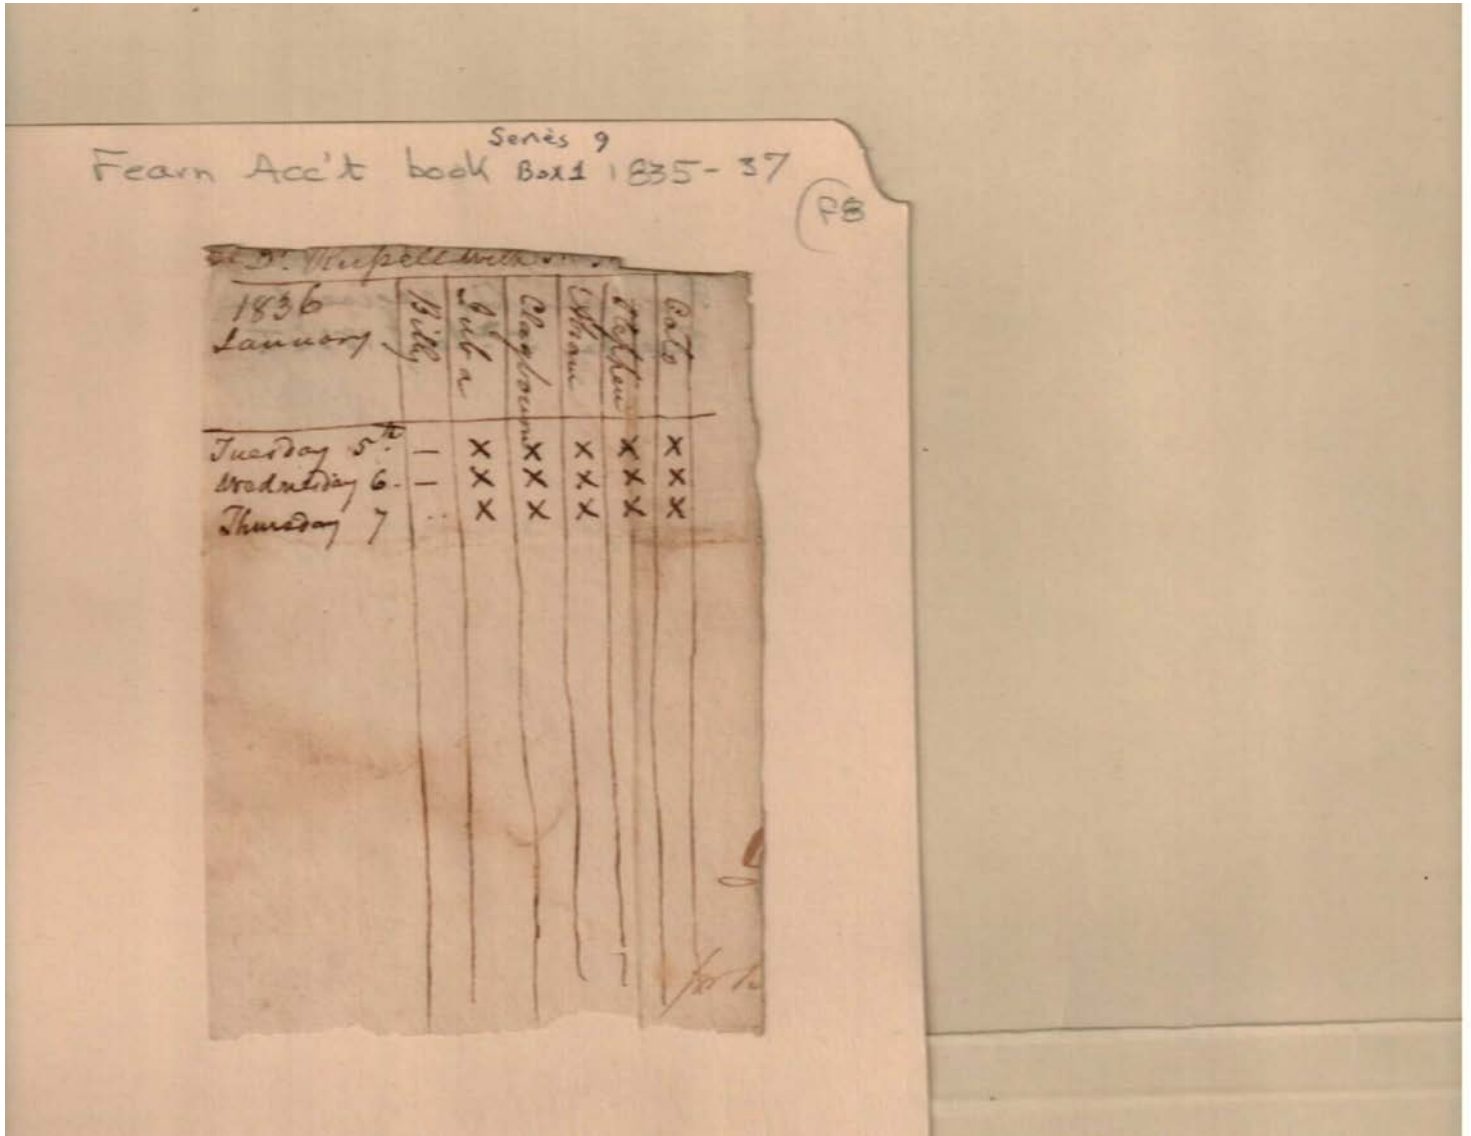 Series 9
Fearn Acc't book Box 1 1835-37
F8
Dr. Russell with
1836 Billy Juba Claybourn Abram Stephen Cato
January
Tuesday 5th. — x x x x x
Wednesday 6. — x x x x x
Thursday 7 .. x x x x x
for